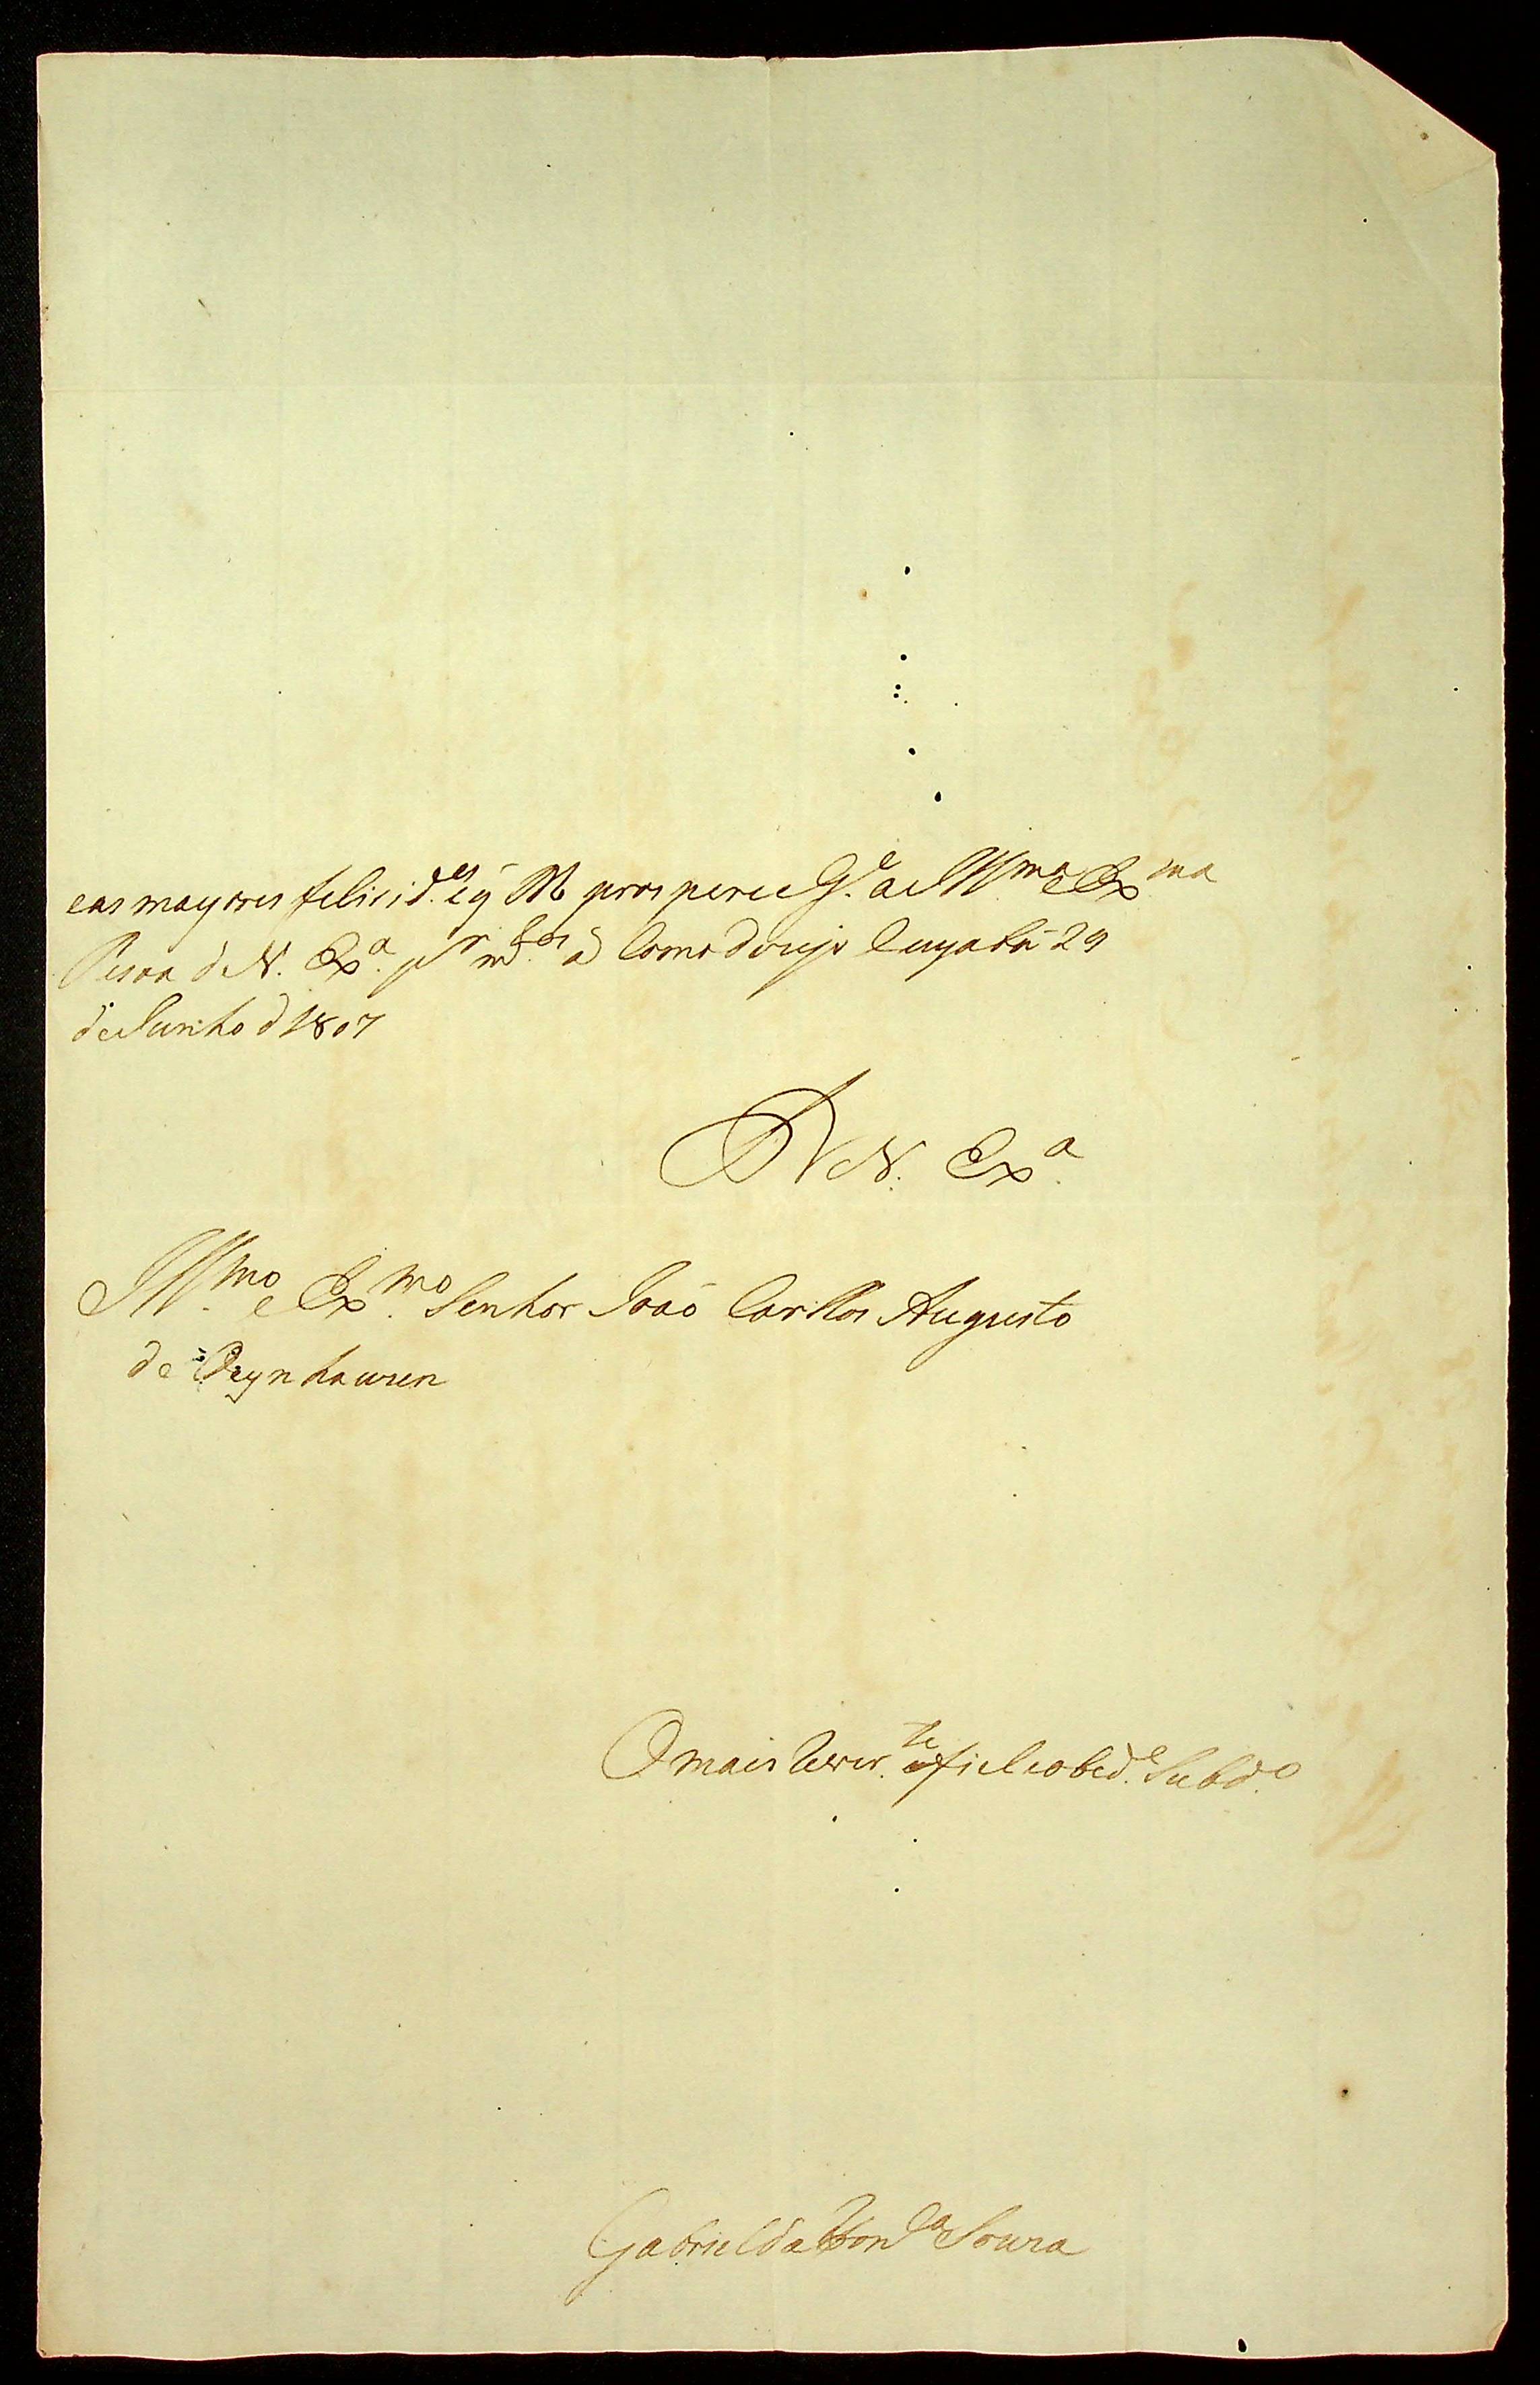 eas mayores felicid.es e q̃ M prospere e G.e a Ill.ma e Ex.ma
Pesoa d V. Ex.a p.r m.tos a Como dezejo Cuyabá 29
de Junho d 1807
D V. Ex.a
Ill.mo e Ex.mo Senhor Joaõ Carllos Augusto
de Oeynhausen
O mais Rever.te e fiel e obed.e Subd.o
Gabriel da Fon.ca Souza